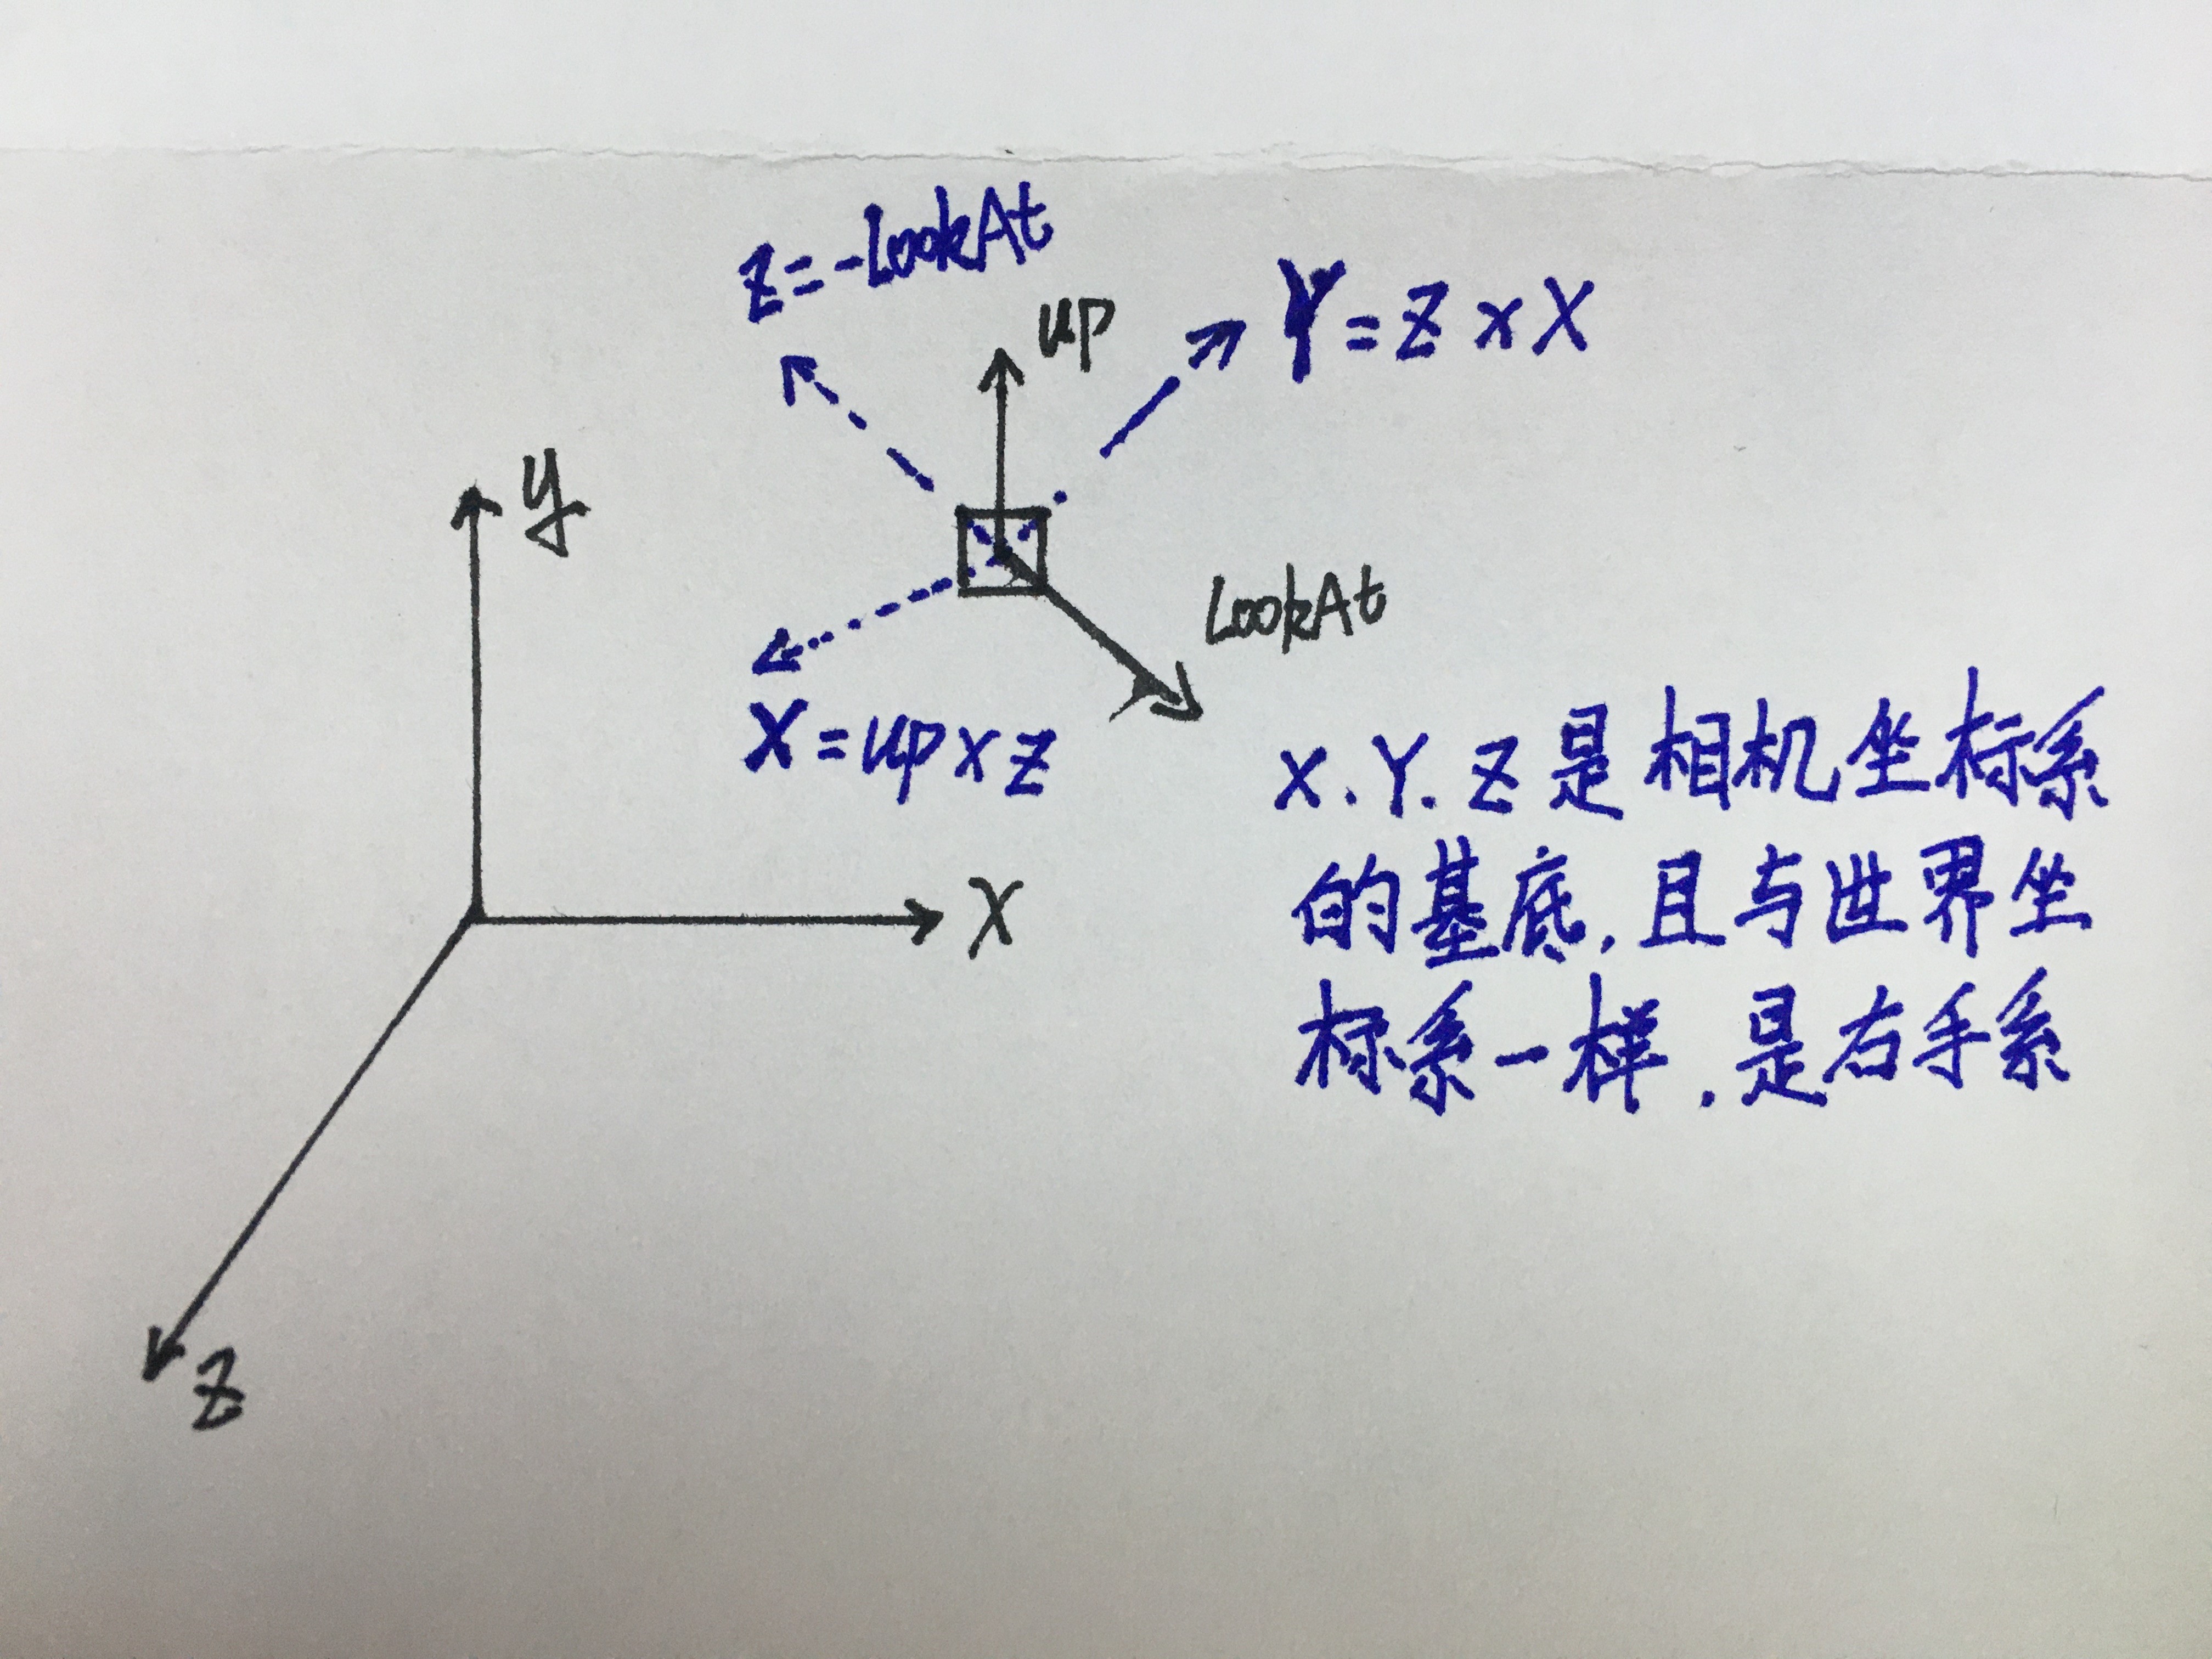 Z=-LookAt
up
Y=Z×X
y
LookAt
X=up×Z
X.Y.Z是相机坐标系
的基底,且与世界坐
标系一样.是右手系
X
Z